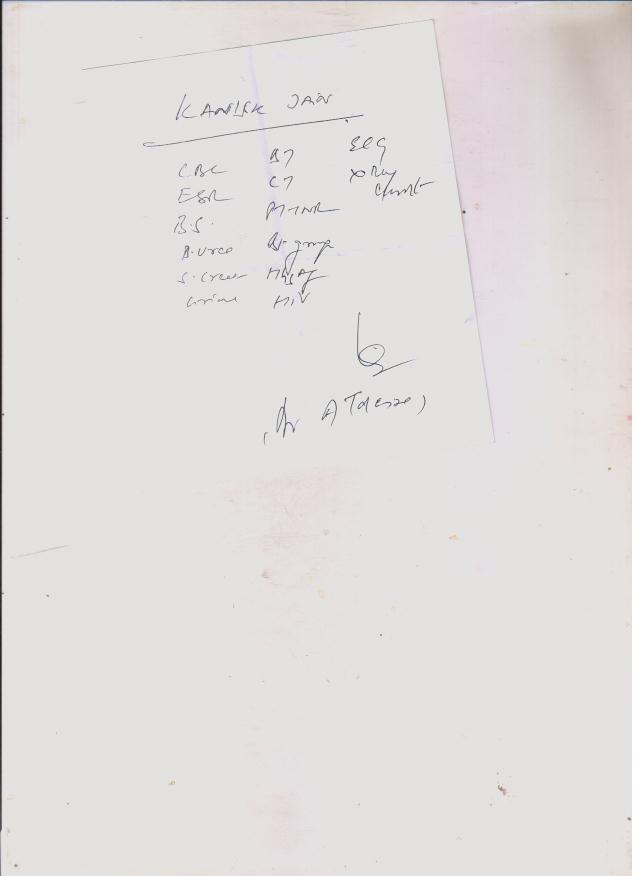 KANISK JAIN
CBC
ESR
B.S.
B.Urea
S.Creat
Urine
BT
CT
PT-INR
Bl-group
HBsAg
HIV
ECG
X Ray
Chest
(Dr A